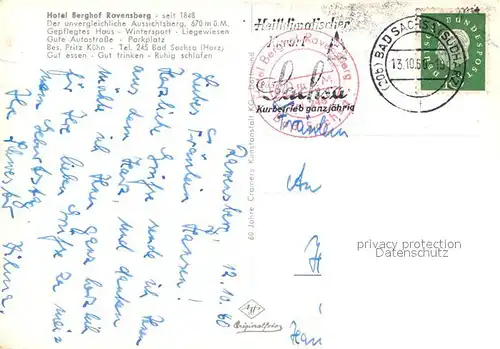 Hotel Berghof Ravensberg - seit 1848
Der unvergleichliche Aussichtsberg, 670 m ü.M.
Gepflegtes Haus - Wintersport - Liegewiesen
Gute Autostraße - Parkplatz
Bes. Fritz Kühn - Tel. 245 Bad Sachsa (Harz)
Gut essen - Gut trinken - Ruhig schlafen
Ravensberg, 12.10.60
Liebes Fräulein Hansen!
Herzliche Grüße sende ich Ihnen
aus dem Harz, und danken
möchte ich Ihnen ganz herzlich
für Ihre lieben Grüße zu mei-
nem Geburtstag.
Ihre
Hilma.
60 Jahre Cramers Kunstanstalt KG, Dortmund
Heilklimatischer
Kurort
Sachsa
Kurbetrieb ganzjährig
Hotel Berghof Ravensberg
(20b) BAD SACHSA (SÜDHARZ)
13.10.60
DEUTSCHE BUNDESPOST
Fräulein
An
Agfa
Originalfoto
privacy protection
ansichtskarten-center.de